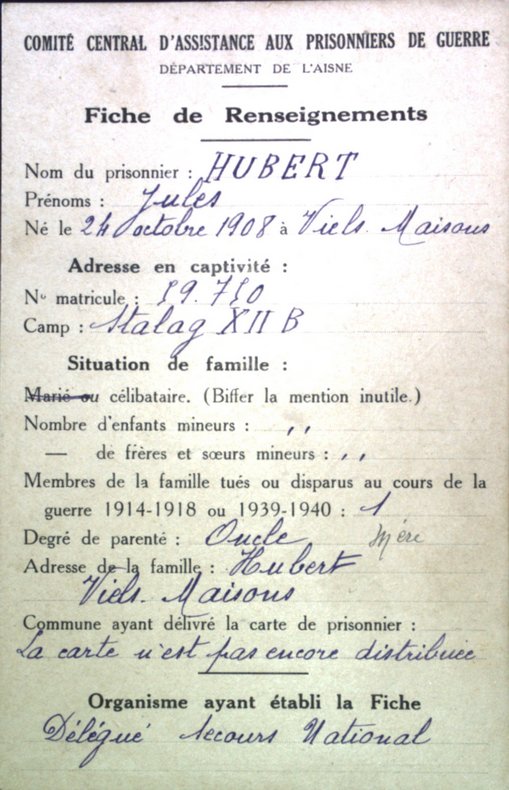 COMITÉ CENTRAL D'ASSISTANCE AUX PRISONNIERS DE GUERRE
DÉPARTEMENT DE L'AISNE
Fiche de Renseignements
Nom du prisonnier : HUBERT
Prénoms : Jules
Né le 24 octobre 1908 à Viels. Maisons
Adresse en captivité :
No matricule : 19.710
Camp : Stalag XII B
Situation de famille :
Marié ou célibataire. (Biffer la mention inutile.)
Nombre d'enfants mineurs : ,,
— de frères et sœurs mineurs : ,,
Membres de la famille tués ou disparus au cours de la
guerre 1914-1918 ou 1939-1940 : 1
Degré de parenté : Oncle Mère
Adresse de la famille : Hubert
Viels. Maisons
Commune ayant délivré la carte de prisonnier :
La carte n'est pas encore distribuée
Organisme ayant établi la Fiche
Délégué Secours National